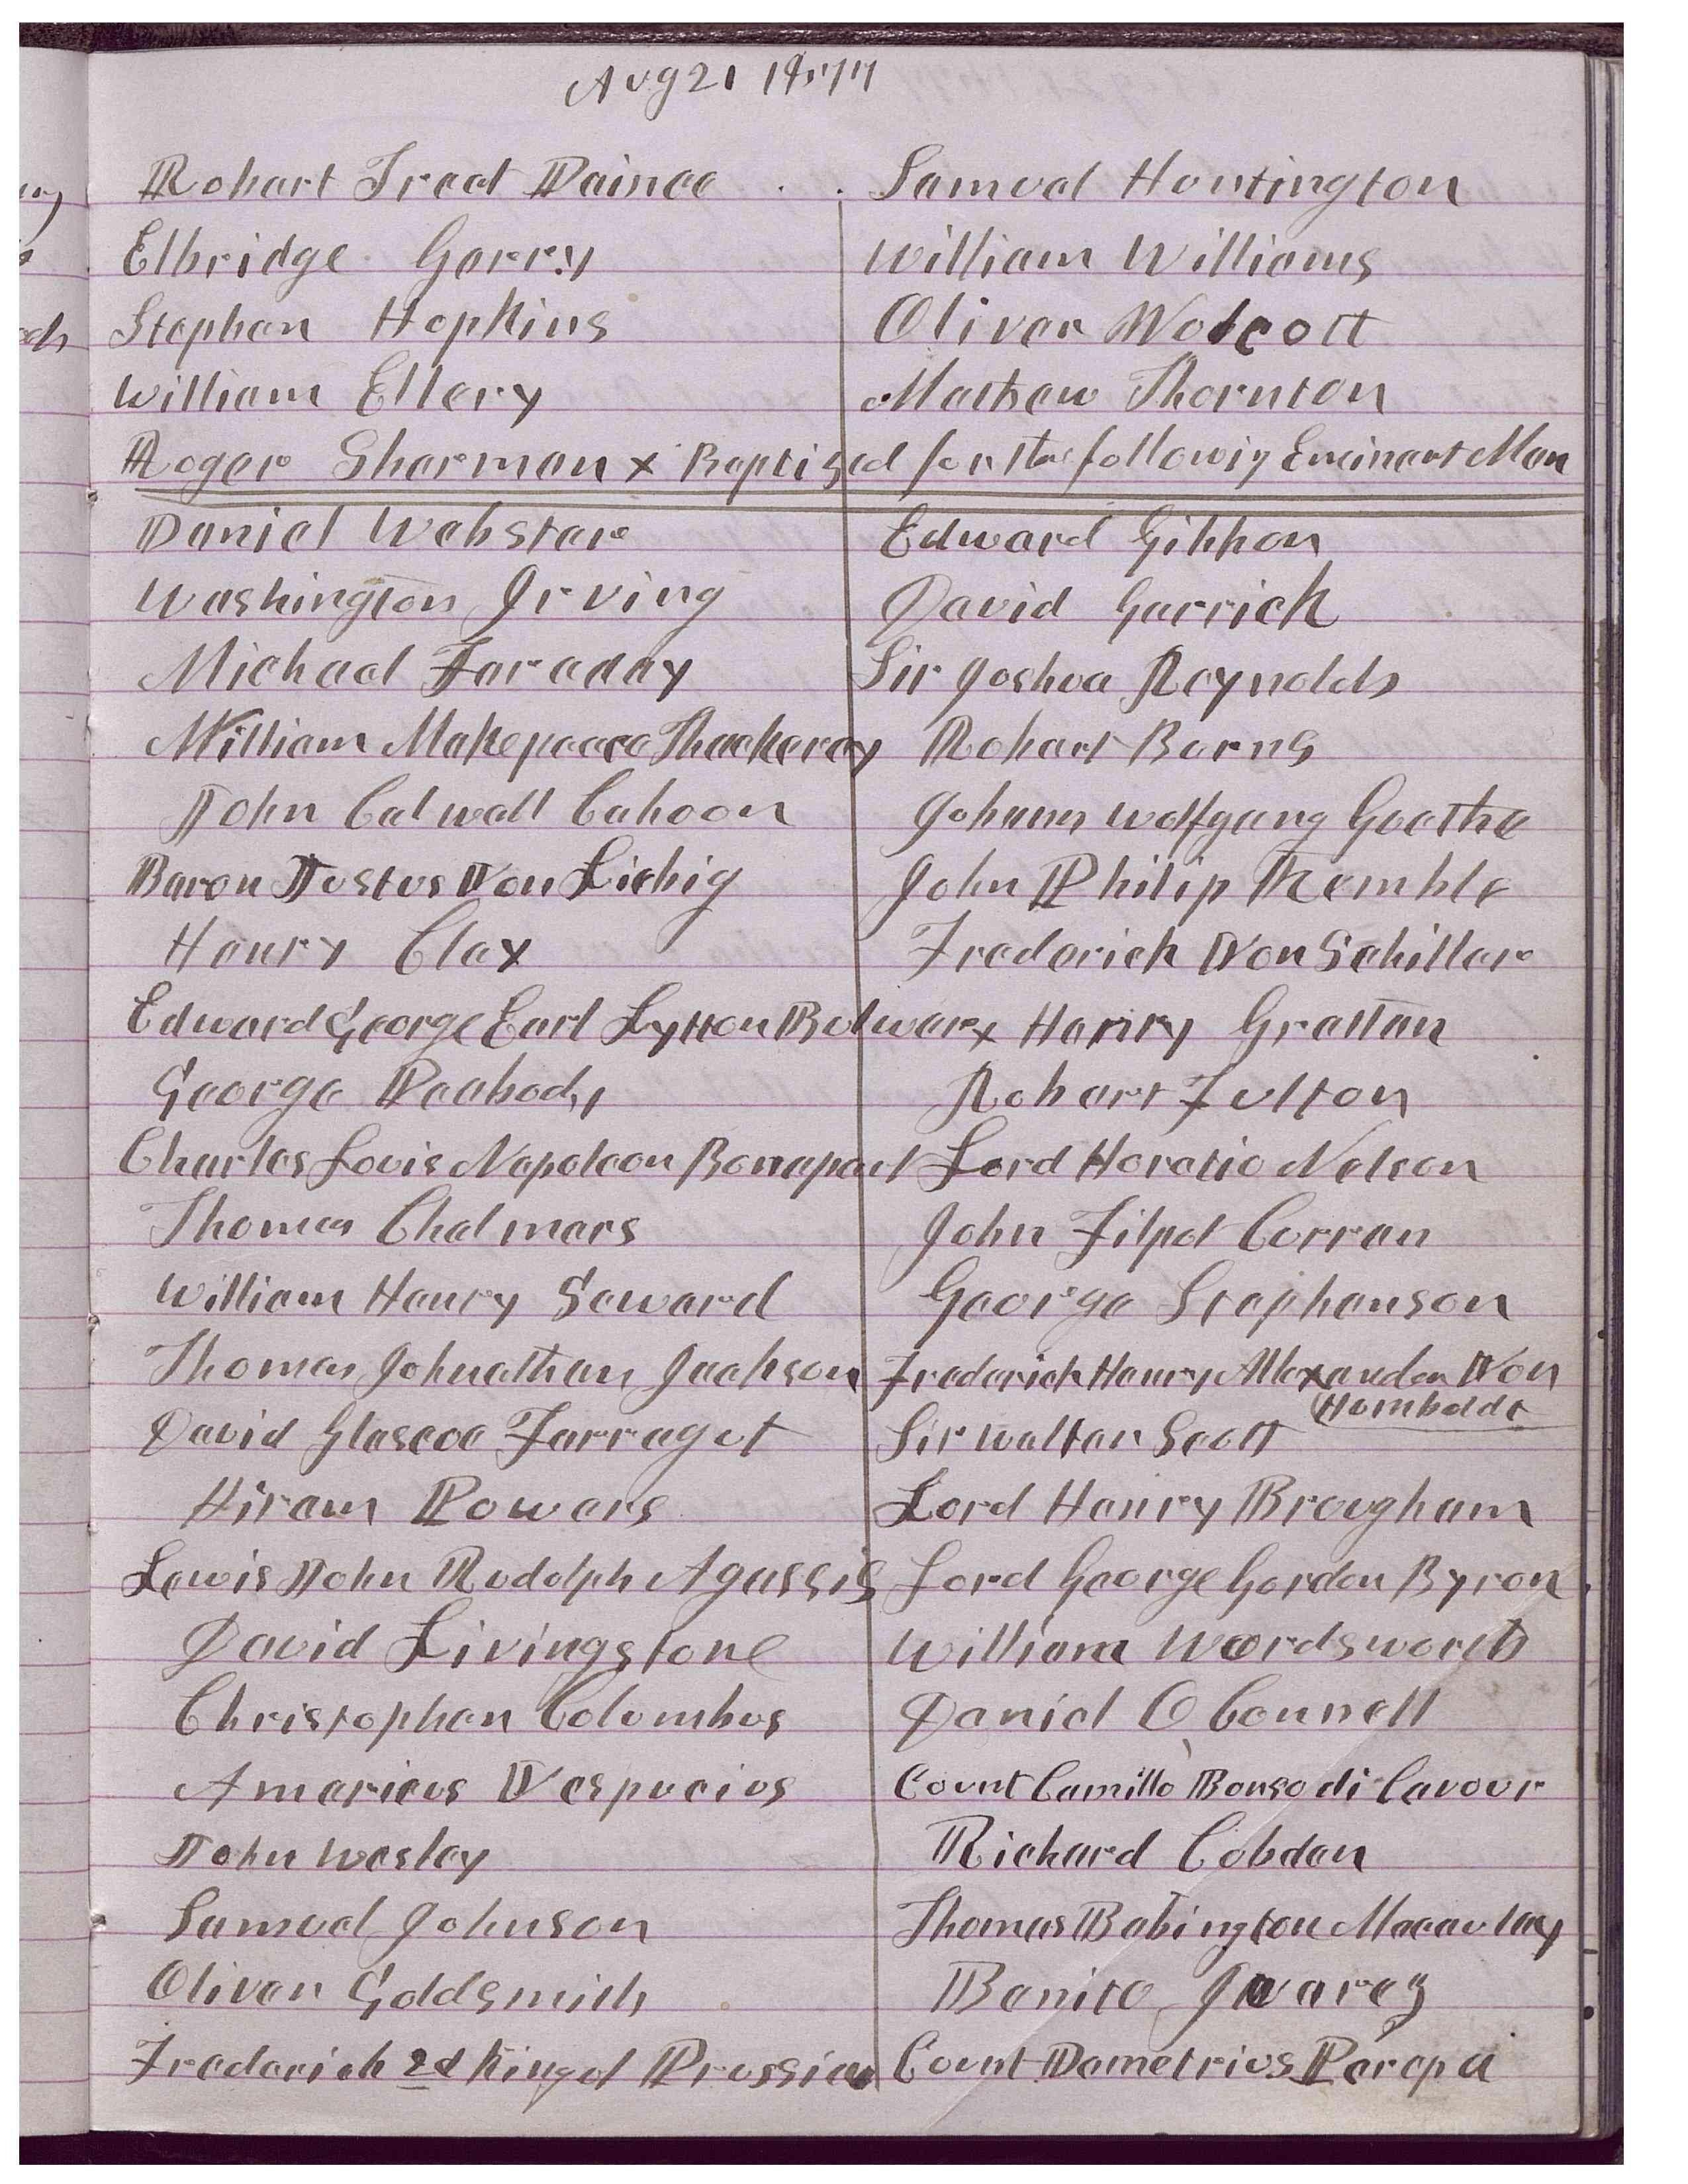 Aug 21 1877
Robart Treat Paince . . Samuel Huntington
Elbridge Gerry William Williams
Stephen Hopkins Oliver Wolcott
William Ellery Mathew Thornton
Roger Sherman x Baptised for the following Eminent Men
Daniel Webster Edward Gibbon
Washington Irving David Garrick
Michael Faraday Sir Joshua Reynolds
William Makepeace Thackeray Robart Burns
John Calwell Cahoon Johann Wolfgang Goethe
Baron Justus Von Liebig John Philip Kemble
Henry Clay Frederick Von Schiller
Edward George Earl Lytton Bulwer x Henry Grattan
George Peabody Robart Fulton
Charles Louis Napoleon Bonapart Lord Horatio Nelson
Thomas Chalmers John Filpot Curran
William Henry Seward George Stephenson
Thomas Johnathan Jackson Frederick Henry Alexander Von
Humboldt
David Glascoe Farragut Sir Walter Scott
Hiram Powers Lord Henry Brougham
Lewis John Rudolph Agassis Lord George Gordon Byron
David Livingstone William Wordsworth
Christopher Columbus Daniel O Connell
Americus Vespucius Count Camillo Bonso di Cavour
John Wesley Richard Cobden
Samuel Johnson Thomas Babington Macaulay
Oliver Goldsmith Benito Juarez
Frederick 2d King of Prussia Count Demetrius Parepa